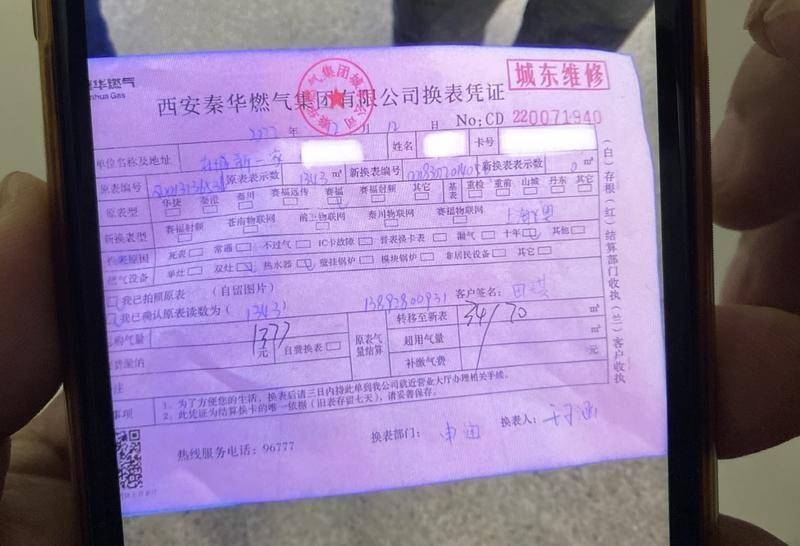 华燃气
nhua Gas
城东维修
西安秦华燃气集团有限公司换表凭证
No:CD 220071940
年 月 12 日
单位名称及地址 姓名 卡号
原表编号 原表表示数 1343 m³ 新换表编号 新换表表示数 0 m³
原表型 华捷 秦港 秦川 赛福远传 赛福 赛福射频 其它 基表 重检 重前 山城 丹东 其它
新换表型 赛福射频 苍南物联网 前卫物联网 秦川物联网 赛福物联网
换表原因 死表 常通 不过气 IC卡故障 普表换卡表 漏气 十年 其他
燃气设备 单灶 双灶 热水器 壁挂锅炉 模块锅炉 非居民设备 其它
我已拍照原表 (自留图片)
我已确认原表读数为( 1343 ) 13892800931 客户签名:
购气量 1377 元 自费换表 原表气量结算 转移至新表 34/70 m³
超用气量 m³
补缴气费 元
1、为了方便您的生活,换表后请三日内持此单到我公司就近营业大厅办理相关手续。
事项 2、此凭证为结算换卡的唯一依据(旧表存留七天),请妥善保存。
热线服务电话:96777 换表部门: 换表人:
(白)存根(红)结算部门收执(兰)客户收执